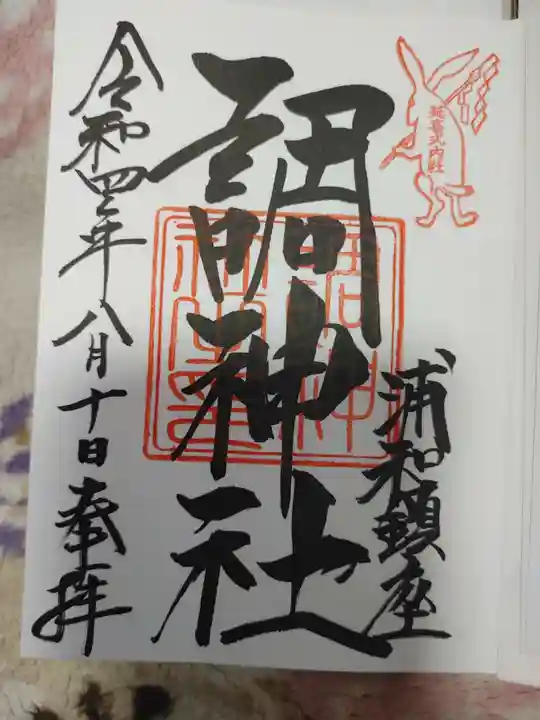 延喜式内社
浦和鎮座
調神社
令和四年八月十日奉拝